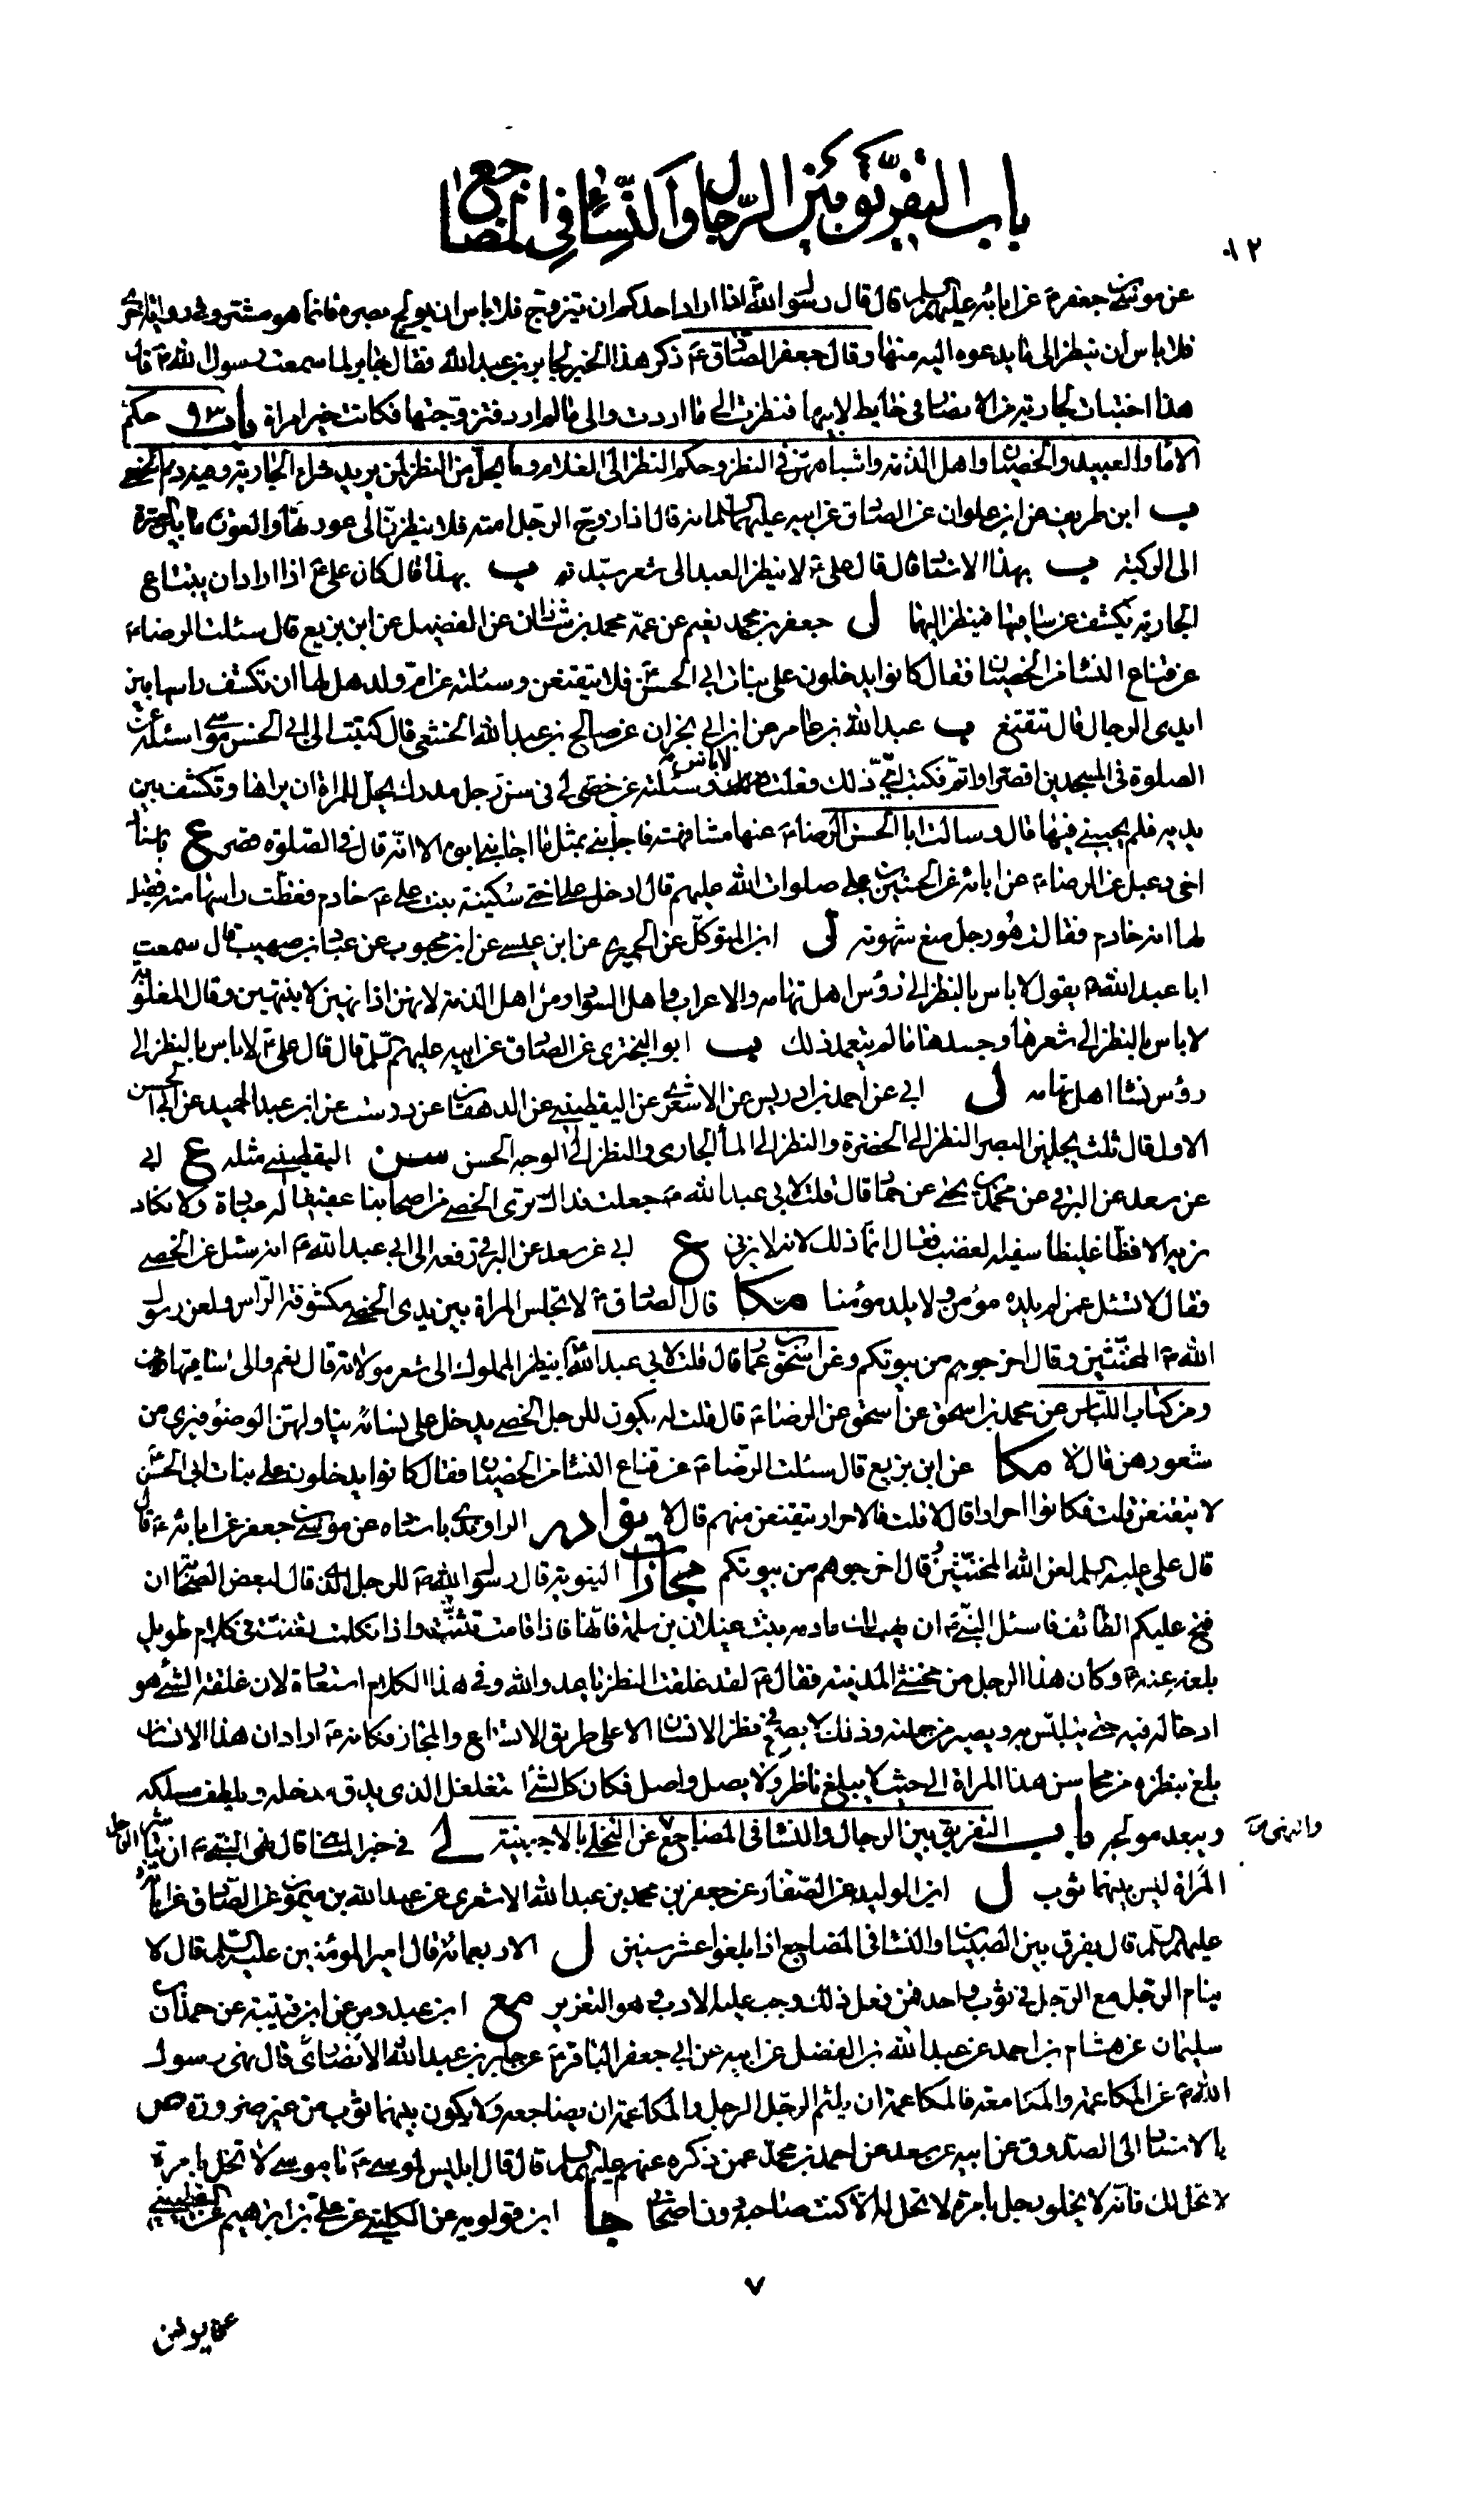 باب التفريق بين الرجال والنساء في المضاجع
١٢٠
عن موسى بن جعفر ع عن ابائه عليهم السلم قال قال رسول الله اذا اراد احدكم ان يتزوج فلا باس ان يولج بصره فانما هو مشتر وفي رواية اخرى
فلا باس ان ينظر الى ما يدعوه اليه منها وقال جعفر الصادق ع ذكر هذا الخبر لجابر بن عبد الله فقال جابر لما سمعت رسول الله ص قال
هذا اختبات لجارية من الانصار في حايط لابيها فنظرت الى ما اردت والى ما لم ارد فتزوجتها فكانت خير امراة باب حكم
الاماء والعبيد والخصيان واهل الذمة واشباههن في النظر وحكم النظر الى الغلام وما يحل من النظر لمن يريد شراء الجارية
ب ابن طريف عن ابن علوان عن الصادق عن ابيه عليهما السلم انه قال اذا زوج الرجل امته فلا ينظرن الى عورتها والعورة ما بين السرة
الى الركبة ب بهذا الاسناد قال قال علي ع لا ينظر العبد الى شعر سيدته ب بهذا قال كان علي ع اذا اراد ان يبتاع
الجارية يكشف عن ساقيها فينظر اليها ل جعفر بن محمد بن نعيم عن عمه محمد بن شاذان عن الفضل عن ابن بزيع قال سئلت الرضا ع
عن قناع النساء من الخصيان فقال كانوا يدخلون على بنات ابي الحسن ع فلا يتقنعن وسئلته عن ام ولد هل لها ان تكشف راسها بين
ايدي الرجال قال تتقنع ب عبد الله بن عامر عن ابن ابي نجران عن صالح بن عبد الله الخثعمي قال كتبت الى ابي الحسن موسى اسئله عن
الصلوة في المسجدين اقصر ام اتم فكتب اي ذلك فعلت لا باس وسئلته عن خصي لي في سن رجل مدرك يحل للمراة ان يراها وتكشف بين
يديه فلم يجبني فيها قال وسالت ابا الحسن الرضا ع عنها مشافهة فاجابني بمثل ما اجابني ابوه الا انه قال في الصلوة قصر ع باسناد
اخي دعبل عن الرضا ع عن ابائه عن الحسين بن علي صلوات الله عليهم قال ادخل على اختي سكينة بنت علي ع خادم فغطت راسها منه فقيل
لها انه خادم فقالت هو رجل منع شهوته ل ابن المتوكل عن الحميري عن ابن عيسى عن ابن محبوب عن عباد بن صهيب قال سمعت
ابا عبد الله ع يقول لا باس بالنظر الى رؤس اهل تهامه والاعراب واهل السواد من اهل الذمة لانهن اذا نهين لا ينتهين وقال المغلوبة
لا باس بالنظر الى شعرها وجسدها ما لم يتعمد ذلك ب ابو البختري عن الصادق عن ابيه عليهم السلم قال قال علي ع لا باس بالنظر الى
رؤس نساء اهل تهامه ل ابي عن احمد بن ادريس عن الاشعري عن اليقطيني عن الدهقان عن درست عن ابن عبد الحميد عن ابي الحسن
الاول قال ثلث يجلين البصر النظر الى الخضرة والنظر الى الماء الجاري والنظر الى الوجه الحسن سن اليقطيني مثله ع ابي
عن سعد عن البرقي عن محمد بن يحيى عن حماد قال قلت لابي عبد الله ع جعلت فداك نرى الخصي من اصحابنا عفيفا له عبادة ولا نكاد
نريه الا فظا غليظا سفيه الغضب فقال انما ذلك لانه لا يزني ع ابي عن سعد عن البرقي رفعه الى ابي عبد الله ع انه سئل عن الخصي
فقال لا تسئل عمن لم يلده مؤمن ولا يلد مؤمنا مكا قال الصادق ع لا تجلس المراة بين يدي الخصي مكشوفة الراس ولعن رسول
الله ص المخنثين وقال اخرجوهم من بيوتكم وعن اسحق بن عمار قال قلت لابي عبد الله ع اينظر المملوك الى شعر مولاته قال نعم والى ساقيها
ومن كتاب اللباس عن محمد بن اسحق عن اسحق عن الرضا ع قال قلت له يكون للرجل الخصي يدخل على نسائه يناولهن الوضوء فيرى من
شعورهن قال لا مكا عن ابن بزيع قال سئلت الرضا ع عن قناع النساء من الخصيان فقال كانوا يدخلون على بنات ابي الحسن
لا يتقنعن قلت فكانوا احرارا قال لا قلت فالاحرار يتقنعن منهم قال لا نوادر الراوندي باسناده عن موسى بن جعفر عن ابائه ع قال
قال علي عليه السلم لعن الله المخنثين وقال اخرجوهم من بيوتكم مجازات النبوية قال رسول الله ص للرجل الذي قال لبعض الصحابة ان
فتح عليكم الطائف فاسئل النبي ص ان يهب لك مادية بنت غيلان بن سلمة فانها اذا قامت تثنت واذا تكلمت تغنت في كلام طويل
بلغه عنه ع وكان هذا الرجل من مخنثي المدينة فقال ع لقد غلغلت النظر يا عدو الله وفي هذا الكلام استعارة لان غلغلة الشيء هو
ادخاله فيه حتى يتلبس به ويصير من جملته وذلك لا يصح في نظر الانسان الا على طريق الاتساع والمجاز فكانه ع اراد ان هذا الانسان
بلغ بنظره من محاسن هذا المراة الى حيث لا يبلغ ناظر ولا يصل واصل فكان كالشيء المتغلغل الذي يدق مدخله ويلطف مسلكه
ويبعد مولجه باب التفريق بين الرجال والنساء في المضاجع والنهي عن التخلي بالاجنبية لي في خبر المناهي قال نهى النبي ص ان يباشر الرجل
المراة ليس بينهما ثوب ل ابن الوليد عن الصفار عن جعفر بن محمد بن عبد الله الاشعري عن عبد الله بن ميمون عن الصادق عن ابائه
عليهم السلم قال يفرق بين الصبيان والنساء في المضاجع اذا بلغوا عشر سنين ل الاربعمائة قال امير المؤمنين عليه السلم قال لا
ينام الرجل مع الرجل في ثوب واحد فمن فعل ذلك وجب عليه الادب وهو التعزير مع ابن عبدوس عن ابن قتيبة عن حمدان بن
سليمان عن هشام بن احمد عن عبد الله بن الفضل عن ابيه عن ابي جعفر الباقر ع عن جابر بن عبد الله الانصاري قال نهى رسول
الله ص عن المكاعمة والمكامعة فالمكاعمة ان يلثم الرجل الرجل والمكامعة ان يضاجعه ولا يكون بينهما ثوب من غير ضرورة ص
بالاسناد الى الصدوق عن ابيه عن سعد عن احمد بن محمد عمن ذكره عنهم عليهم السلم قال قال ابليس لموسى ع يا موسى لا تخل بامرة
لا تحل لك فانه لا يخلو رجل بامرة لا تحل له الا كنت صاحبه دون اصحابي جا ابن قولويه عن الكليني عن علي بن ابراهيم عن اليقطيني
٧
عن يونس